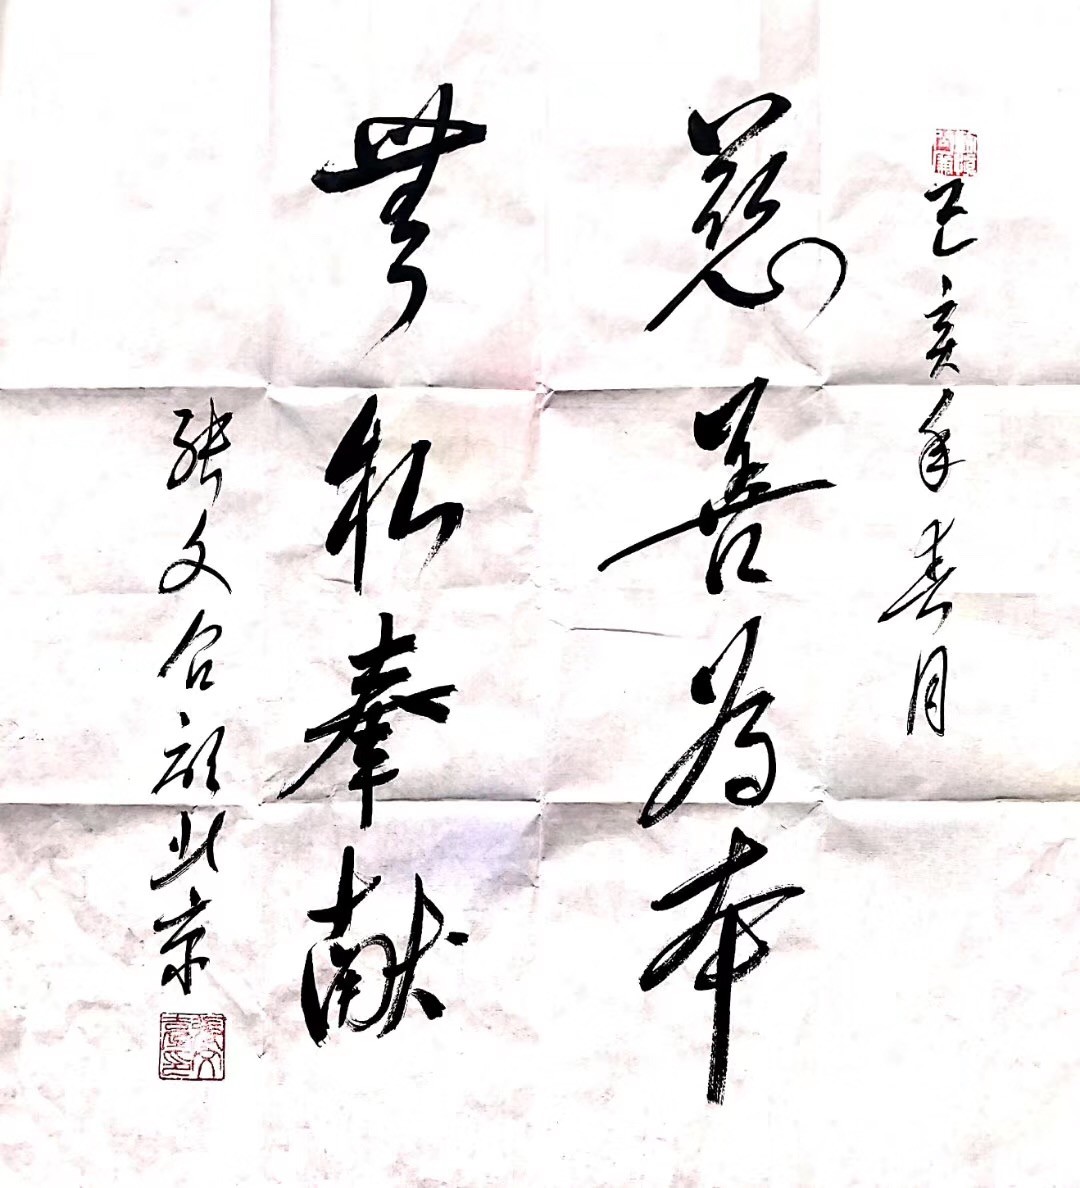 己亥年春月
慈善为本
無私奉献
张文台北京